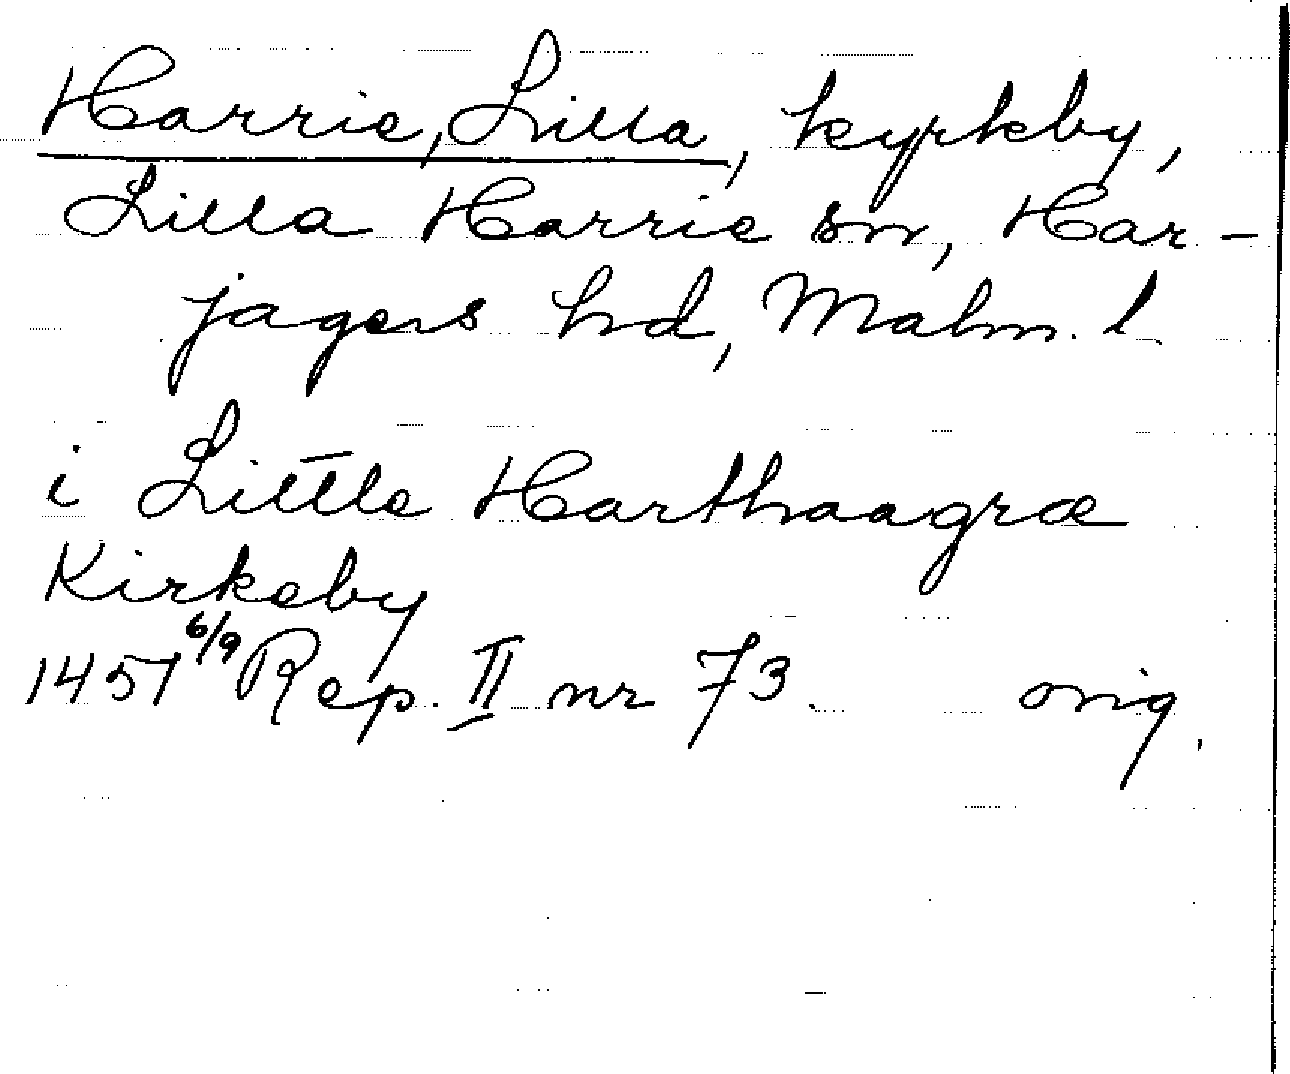 Harrie, Lilla, kyrkby,
Lilla Harrie sn, Har-
jagers hd, Malm. l.
i Little Harthaagræ
Kirkeby
1457 6/9 Rep. II nr 73. orig.